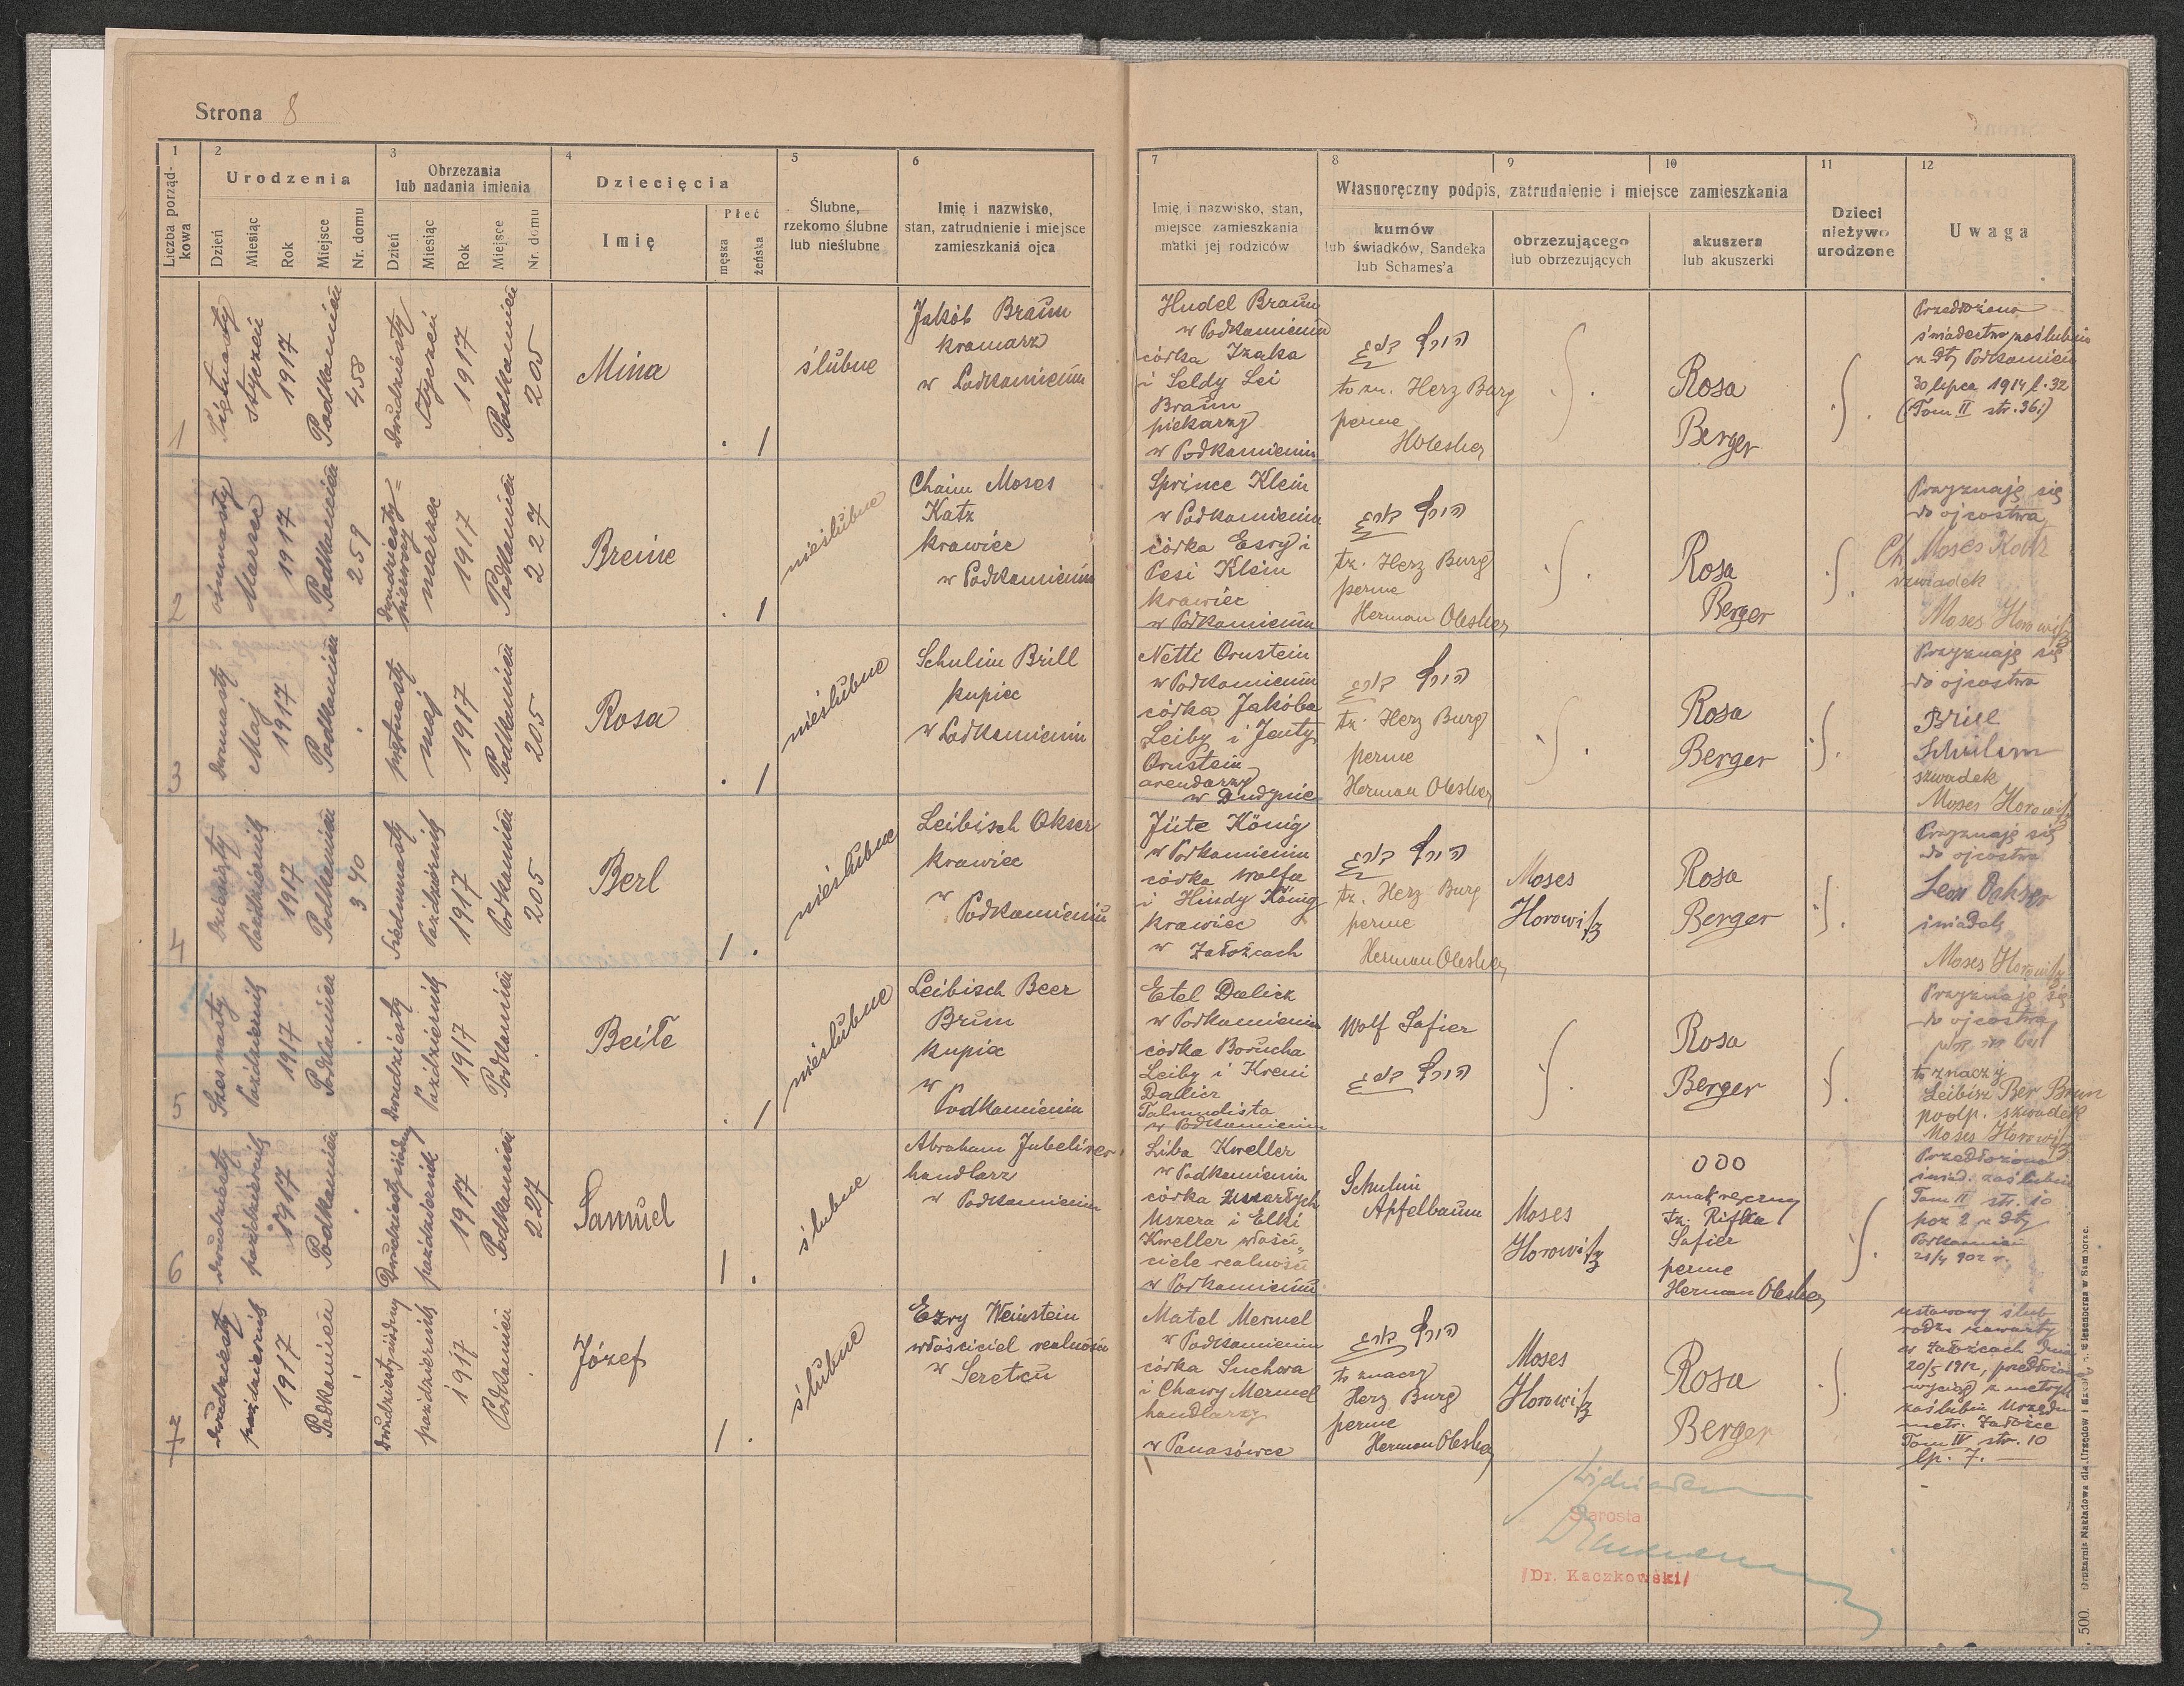 Strona 8
1
2
3
4
5
6
Liczba porząd-
kowa
Urodzenia
Dzień
Miesiąc
Rok
Miejsce
Nr. domu
Obrzezania
lub nadania imienia
Dzień
Miesiąc
Rok
Miejsce
Nr. domu
Dziecięcia
Imię
Płeć
męska
żeńska
Ślubne,
rzekomo ślubne
lub nieślubne
Imię i nazwisko,
stan, zatrudnienie i miejsce
zamieszkania ojca
7
8
9
10
11
12
Imię i nazwisko, stan,
miejsce zamieszkania
matki jej rodziców
Własnoręczny podpis, zatrudnienie i miejsce zamieszkania
kumów
lub świadków, Sandeka
lub Schames'a
obrzezującego
lub obrzezujących
akuszera
lub akuszerki
Dzieci
nieżywo
urodzone
Uwaga
1
Piętnasty
styczeń
1917
Podkamień
458
Dwudziesty
Styczeń
1917
Podkamień
205
Mina
. 1
ślubne
Jakób Braun
kramarz
w Podkamieniu
Hudel Braun
w Podkamieniu
córka Izaka
i Seldy Lei
Braun
piekarzy
w Podkamieniu
הירץ בורג
to zn. Herz Burg
perme
HOlesker
Rosa
Berger
Przedłożono
świadectwo zaślubin
z dty Podkamień
30 lipca 1914 l. 32
(Tom II str. 36.)
2
ósmnasty
Marzec
1917
Podkamień
259
Dwudziesty=
pierwszy
marzec
1917
Podkamień
227
Breine
. 1
nieślubne
Chaim Moses
Katz
krawiec
w Podkamieniu
Sprince Klein
w Podkamieniu
córka Esry i
Pesi Klein
krawiec
w Podkamieniu
הירץ בורג
tz. Herz Burg
perme
Herman Olesker
Rosa
Berger
Przyznaję się
do ojcostwa
Ch. Moses Katz
szwiadek
Moses Horowitz
3
Dwunasty
Maj
1917
Podkamień
piętnasty
maj
1917
Podkamień
205
Rosa
. 1
nieślubne
Schulim Brill
kupiec
w Podkamieniu
Netti Ornstein
w Podkamieniu
córka Jakóba
Leiby i Jenty
Ornstein
arendarzy
w Dudynie
הירץ בורג
tz. Herz Burg
perme
Herman Olesker
Rosa
Berger
Przyznaję się
do ojcostwa
Brill
Schulim
szwadek
Moses Horowitz
4
Dziesiąty
Październik
1917
Podkamień
340
Siedmnasty
Październik
1917
Podkamień
205
Berl
1 .
nieślubne
Leibisch Okser
krawiec
w
Podkamieniu
Jüte König
w Podkamieniu
córka Wolfa
i Hindy König
krawiec
w Załoźcach
הירץ בורג
tz. Herz Burg
perme
Herman Olesker
Moses
Horowitz
Rosa
Berger
Przyznaję się
do ojcostwa
Leon Ochser
świadek
Moses Horowitz
5
Szesnasty
Październik
1917
Podkamień
Dwudziesty
Październik
1917
Podkamień
Beile
. 1
nieślubne
Leibisch Beer
Brun
kupiec
w
Podkamieniu
Etel Dalicz
w Podkamieniu
córka Borucha
Leiby i Kreni
Dalicz
Talmudista
w Podkamieniu
Wolf Safier
הירץ בורג
Rosa
Berger
Przyznaję się
do ojcostwa
to znaczy
Leibisz Ber Brun
podp. szwadek
Moses Horowitz
6
Dwudziesty
październik
1917
Podkamień
Dwudziesty siódmy
październik
1917
Podkamień
227
Samuel
1 .
ślubne
Abraham Jubelirer
handlarz
w Podkamieniu
Liba Kweller
w Podkamieniu
córka zmarłych
Uszera i Elki
Kweller właści
ciele realności
w Podkamieniu
Schulim
Apfelbaum
Moses
Horowitz
ooo
znak ręczny
tz. Rifka
Safier
perme
Herman Olesker
Przedłożono
świad. zaślubin
Tom II str. 10
poz 2 z dty
Podkamień
21/4 902 r.
7
Dwudziesty
październik
1917
Podkamień
Dwudziesty siódmy
październik
1917
Podkamień
Józef
1 .
ślubne
Ezry Weinstein
właściciel realności
w Seretcu
Matel Mermel
w Podkamieniu
córka Suchera
i Chawy Mermel
handlarzy
w Panasówce
הירץ בורג
to znaczy
Herz Burg
perme
Herman Olesker
Moses
Horowitz
Rosa
Berger
ustawowy ślub
rodz. zawarty
w Załoźcach dnia
20/5 1912, przedłożono
wyciąg z metryk
zaślubin Urzędu
metr. Załoźce
Tom IV str. 10
lp. 7.
Starosta
/Dr. Kaczkowski/
500.